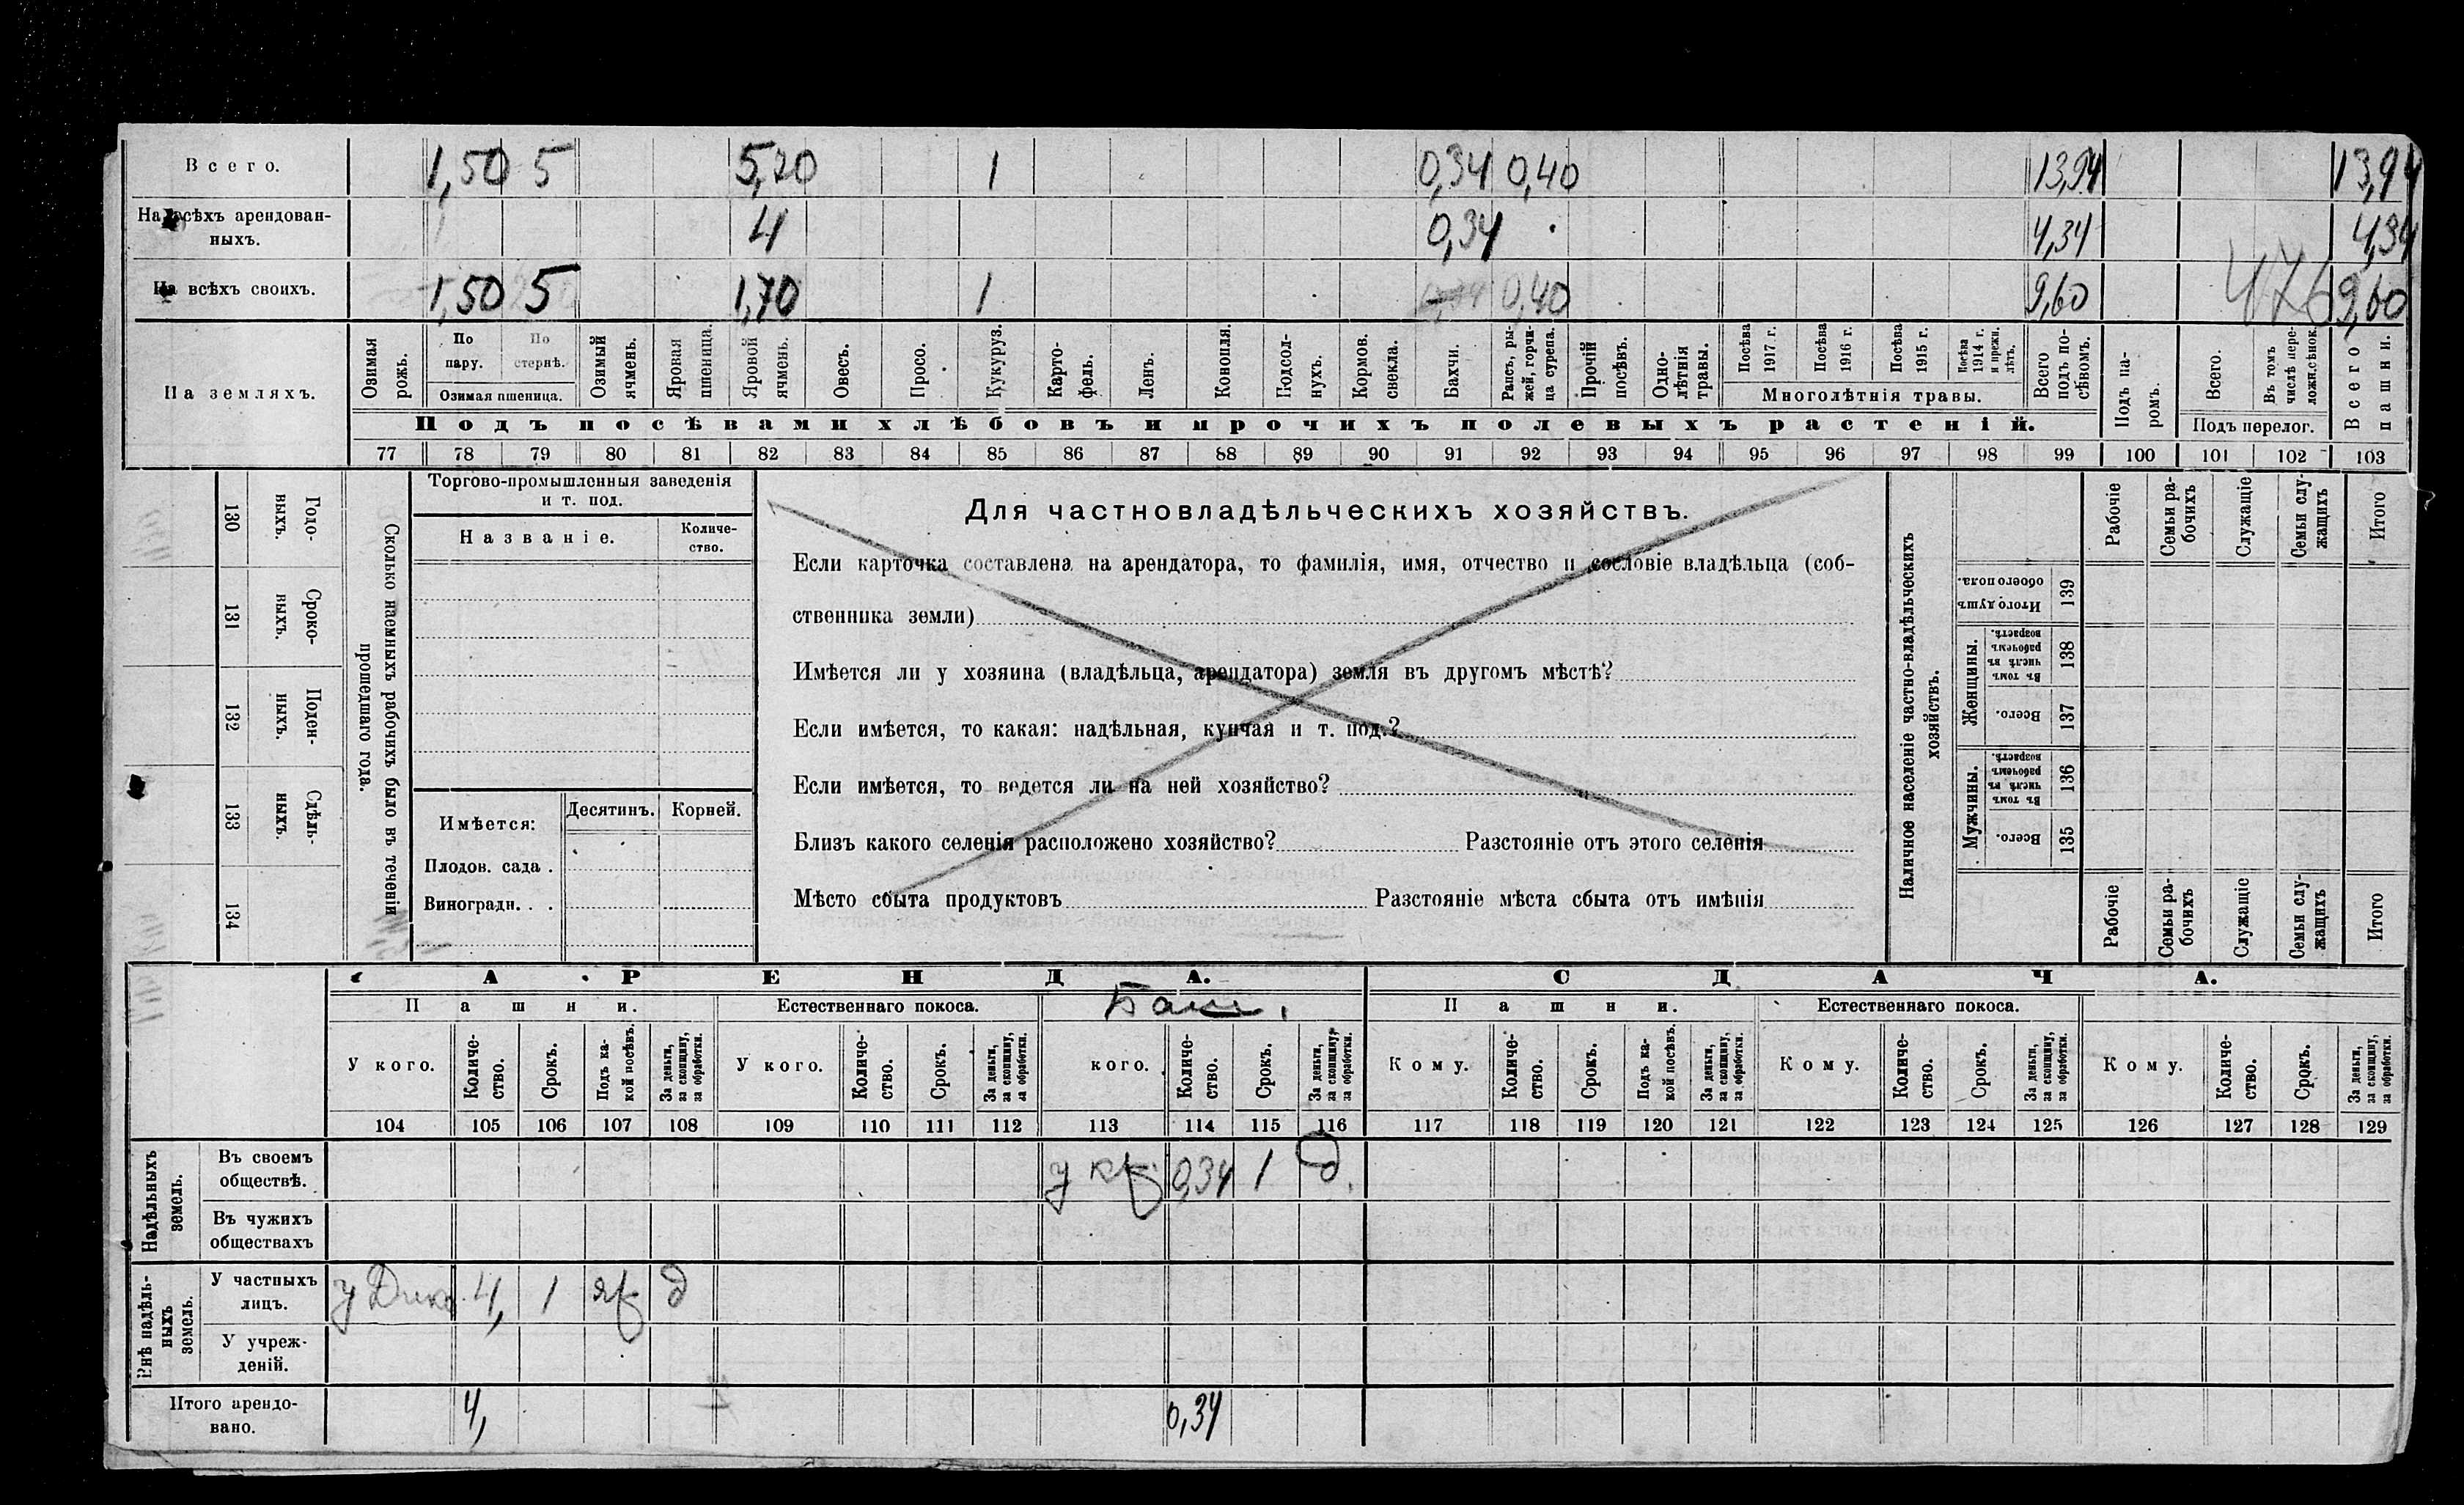 Всего. 1,50 5 5,70 1 0,34 0,40 13,94 13,94
На всѣхъ арендован-
ныхъ. 4 0,34 4,34 4,34
На всѣхъ своихъ. 1,50 5 1,70 1 0,40 9,60 476 9,60
На земляхъ.
Озимая рожь.
По пару.
По стернѣ.
Озимая пшеница.
Озимый ячмень.
Яровая пшеница.
Яровой ячмень.
Овесъ.
Просо.
Кукуруз.
Карто-
фель.
Ленъ.
Конопля.
Подсол-
нухъ.
Кормов. свекла.
Бахчи.
Рапсъ, ры-
жей, горчи-
ца сурепа.
Прочій посѣвъ.
Одно-
лѣтнія травы.
Посѣва 1917 г.
Посѣва 1916 г.
Посѣва 1915 г.
Посѣва 1914 г. и прежн. лѣтъ.
Многолѣтнія травы.
Всего подъ по-
сѣвомъ.
Подъ па-
ромъ.
Всего.
Въ томъ числѣ пере-
ложн.сѣнок.
Подъ перелог.
Всего пашни.
Подъ посѣвами хлѣбовъ и прочихъ полевыхъ растеній.
77 78 79 80 81 82 83 84 85 86 87 88 89 90 91 92 93 94 95 96 97 98 99 100 101 102 103
130 Годо-
ныхъ.
131 Сроко-
выхъ.
132 Поден-
ныхъ.
133 Сдѣль-
ныхъ.
134
Сколько наемныхъ рабочихъ было въ теченіи
прошедшаго года.
Торгово-промышленныя заведенія
и т. под.
Названіе.
Количе-
ство.
Имѣется:
Десятинъ. Корней.
Плодов. сада .
Виноградн. . .
Для частновладѣльческихъ хозяйствъ.
Если карточка составлена на арендатора, то фамилія, имя, отчество и сословіе владѣльца (соб-
ственника земли)
Имѣется ли у хозяина (владѣльца, арендатора) земля въ другомъ мѣстѣ?
Если имѣется, то какая: надѣльная, купчая и т. под.?
Если имѣется, то ведется ли на ней хозяйство?
Близъ какого селенія расположено хозяйство? Разстояніе отъ этого селенія
Мѣсто сбыта продуктовъ Разстояніе мѣста сбыта отъ имѣнія
Наличное населеніе частно-владѣльческихъ
хозяйствъ.
Рабочіе
Семьи ра-
бочихъ
Служащіе
Семьи слу-
жащихъ
Итого
Итого душъ обоего пола. 139
Женщины.
Въ томъ числѣ въ рабочемъ возрастѣ. 138
Всего. 137
Мужчины.
Въ томъ числѣ въ рабочемъ возрастѣ. 136
Всего. 135
Рабочіе
Семьи ра-
бочихъ
Служащіе
Семьи слу-
жащихъ
Итого
АРЕНДА. СДАЧА.
Пашни. Естественнаго покоса. Пашни. Естественнаго покоса.
У кого.
Количе-
ство.
Срокъ.
Подъ ка-
кой посѣвъ.
За деньги,
за скопщину,
за обработки.
У кого.
Количе-
ство.
Срокъ.
За деньги,
за скопщину,
за обработки.
кого.
Количе-
ство.
Срокъ.
За деньги,
за скопщину,
за обработки.
Кому.
Количе-
ство.
Срокъ.
Подъ ка-
кой посѣвъ.
За деньги,
за скопщину,
за обработки.
Кому.
Количе-
ство.
Срокъ.
За деньги,
за скопщину,
за обработки.
Кому.
Количе-
ство.
Срокъ.
За деньги,
за скопщину,
за обработки.
104 105 106 107 108 109 110 111 112 113 114 115 116 117 118 119 120 121 122 123 124 125 126 127 128 129
Надѣльныхъ
земель.
Въ своемъ
обществѣ. у 0,34 1 д.
Въ чужихъ
обществахъ
Внѣ надѣль-
ныхъ
земель.
У частныхъ
лицъ. у 4, 1 д
У учреж-
деній.
Итого арендо-
вано. 4, 0,34